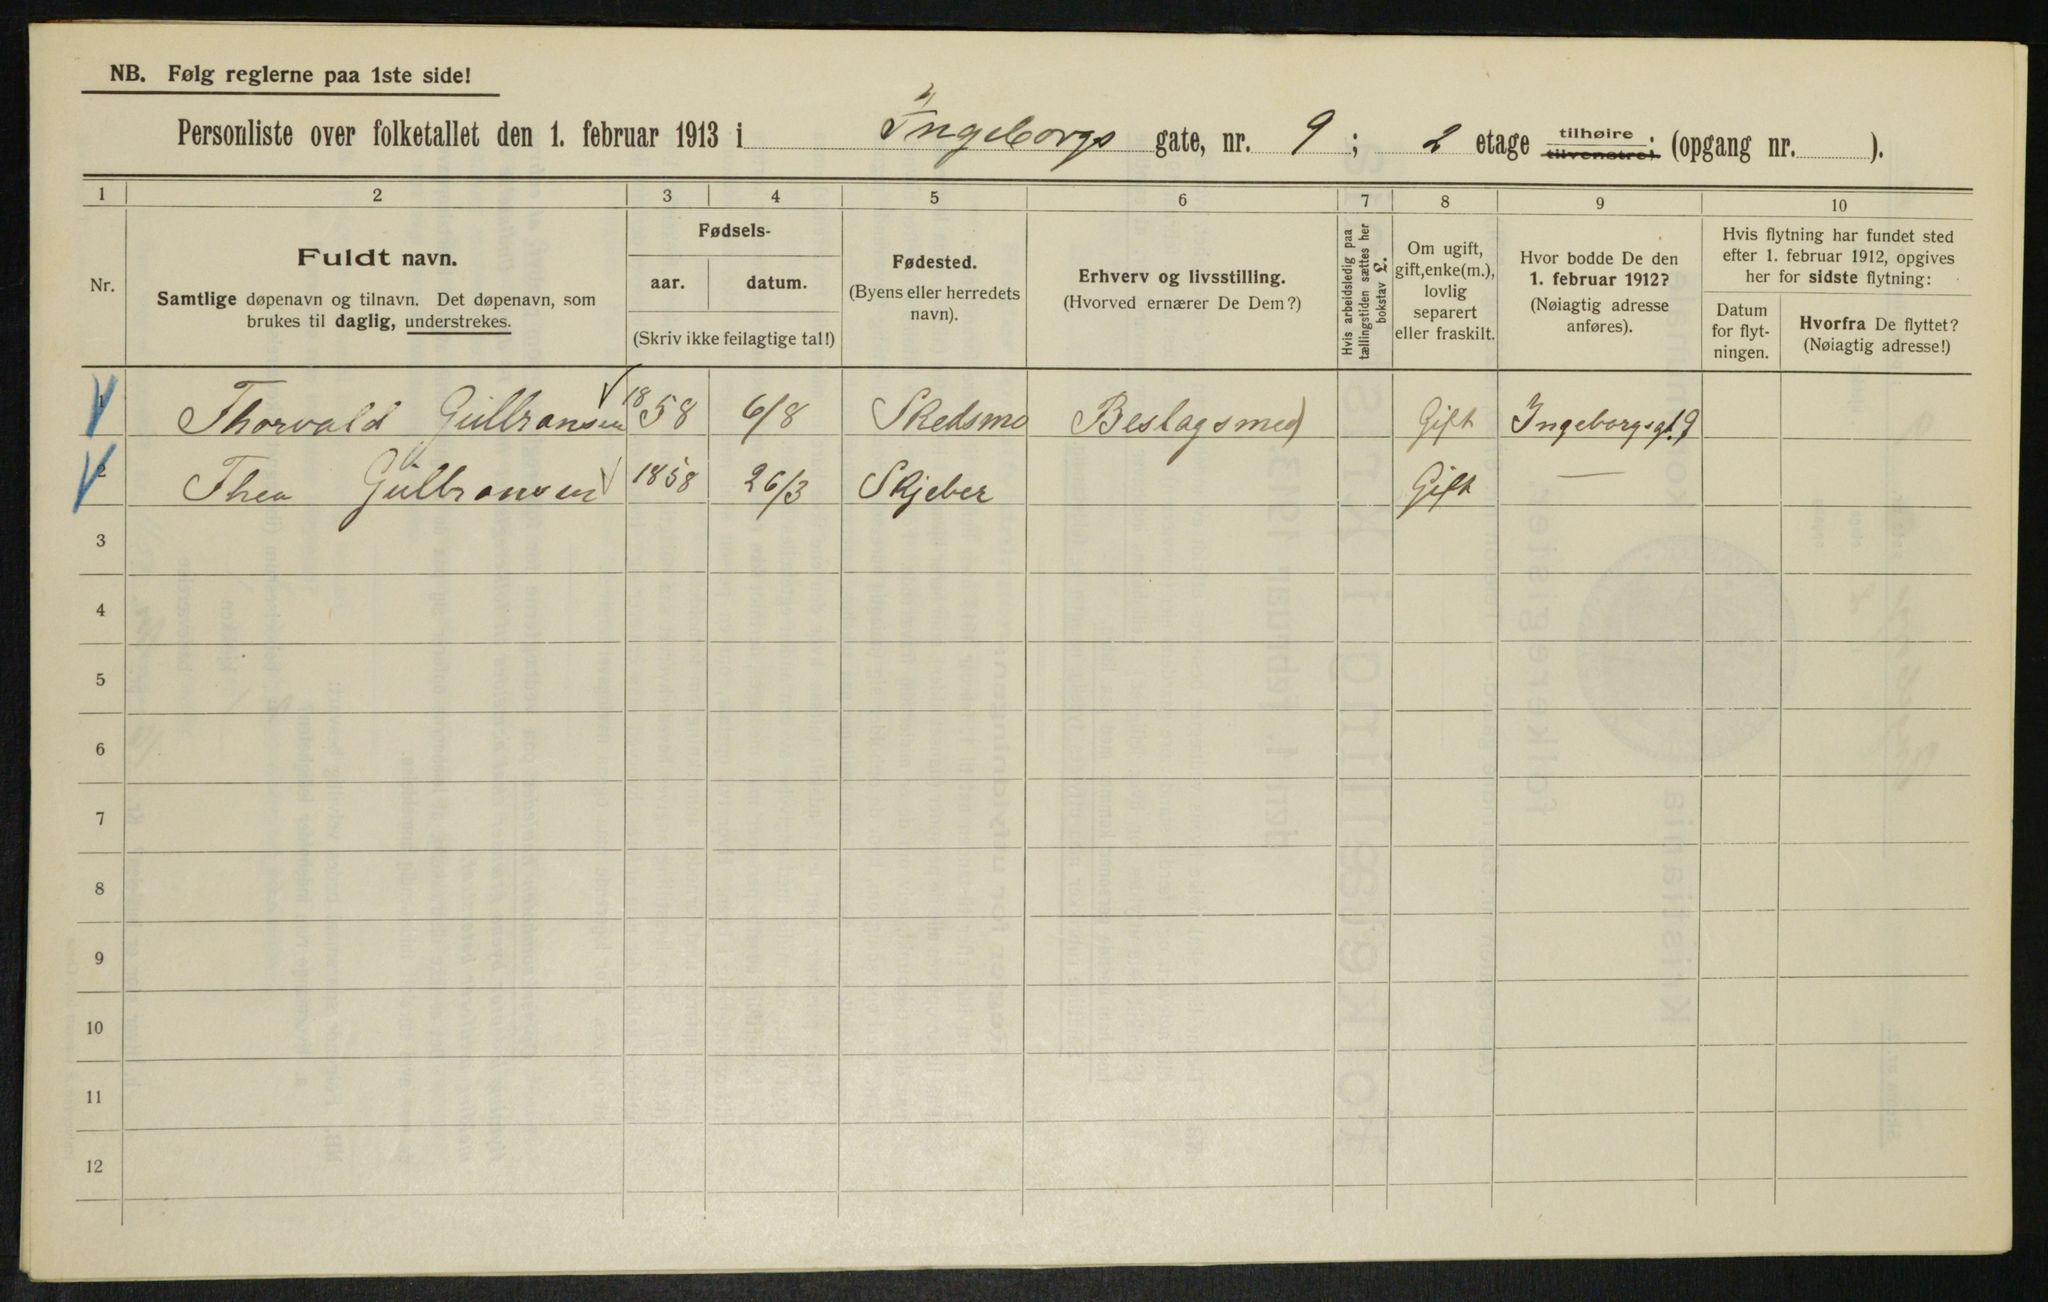 NB. Følg reglerne paa 1ste side!
Personliste over folketallet den 1. februar 1913 i Ingeborgs gate, nr. 9; 2 etage tilhøire tilvenstre; (opgang nr. ).
1 2 3 4 5 6 7 8 9 10
Nr.
Fuldt navn.
Samtlige døpenavn og tilnavn. Det døpenavn, som
brukes til daglig, understrekes.
Fødsels-
aar. datum.
(Skriv ikke feilagtige tal!)
Fødested.
(Byens eller herredets
navn).
Erhverv og livsstilling.
(Hvorved ernærer De Dem?)
Hvis arbeidsledig paa
tællingstiden sættes her
bokstav L.
Om ugift,
gift, enke(m.),
lovlig
separert
eller fraskilt.
Hvor bodde De den
1. februar 1912?
(Nøiagtig adresse
anføres).
Hvis flytning har fundet sted
efter 1. februar 1912, opgives
her for sidste flytning:
Datum
for flyt-
ningen.
Hvorfra De flyttet?
(Nøiagtig adresse!)
1 Thorvald Gulbransen 1858 6/8 Skedsmo Beslagsmed Gift Ingeborgsgt. 9
2 Thea Gulbransen 1858 26/3 Skjeber Gift —
3
4
5
6
7
8
9
10
11
12